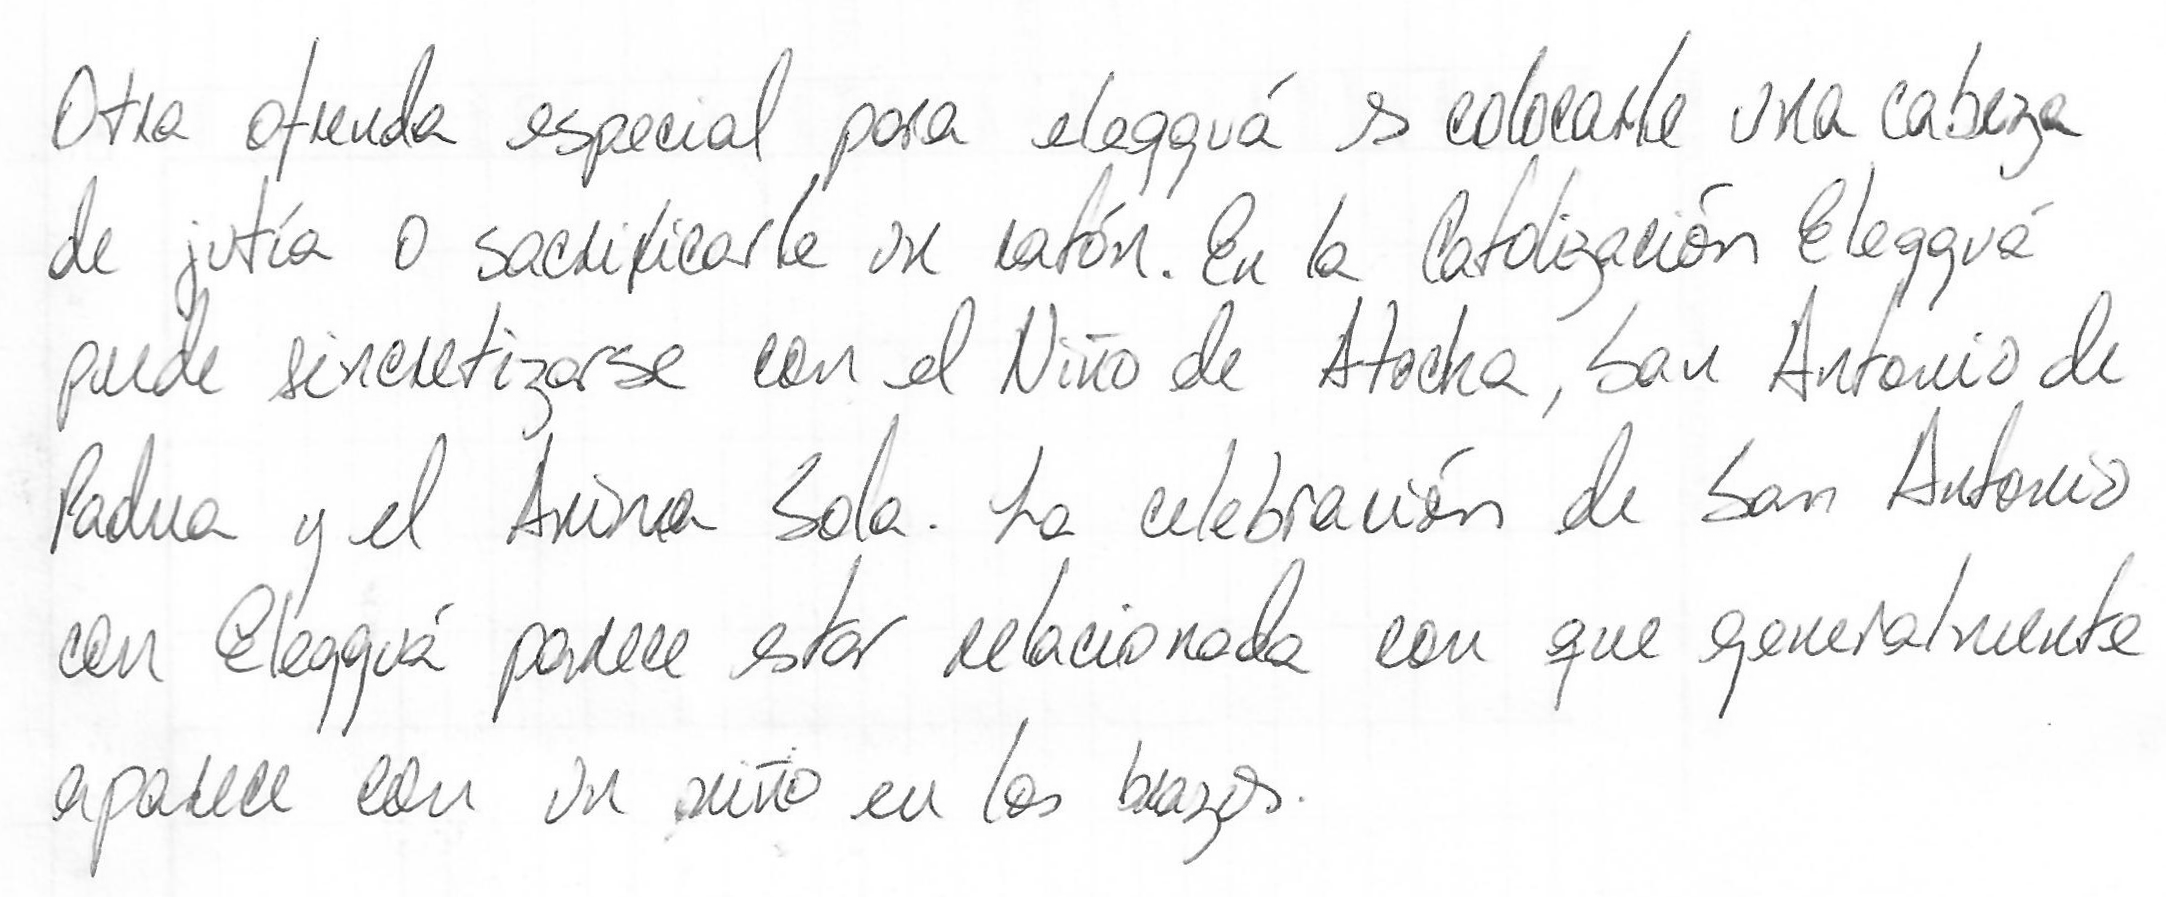 Otra ofrenda especial para elegguá es colocarle una cabeza
de jutía o sacrificarle un ratón. En la Catolización Elegguá
puede sincretizarse con el Niño de Atocha, San Antonio de
Padua y el Anima Sola. La celebración de San Antonio
con Elegguá parece estar relacionada con que generalmente
aparece con un niño en los brazos.